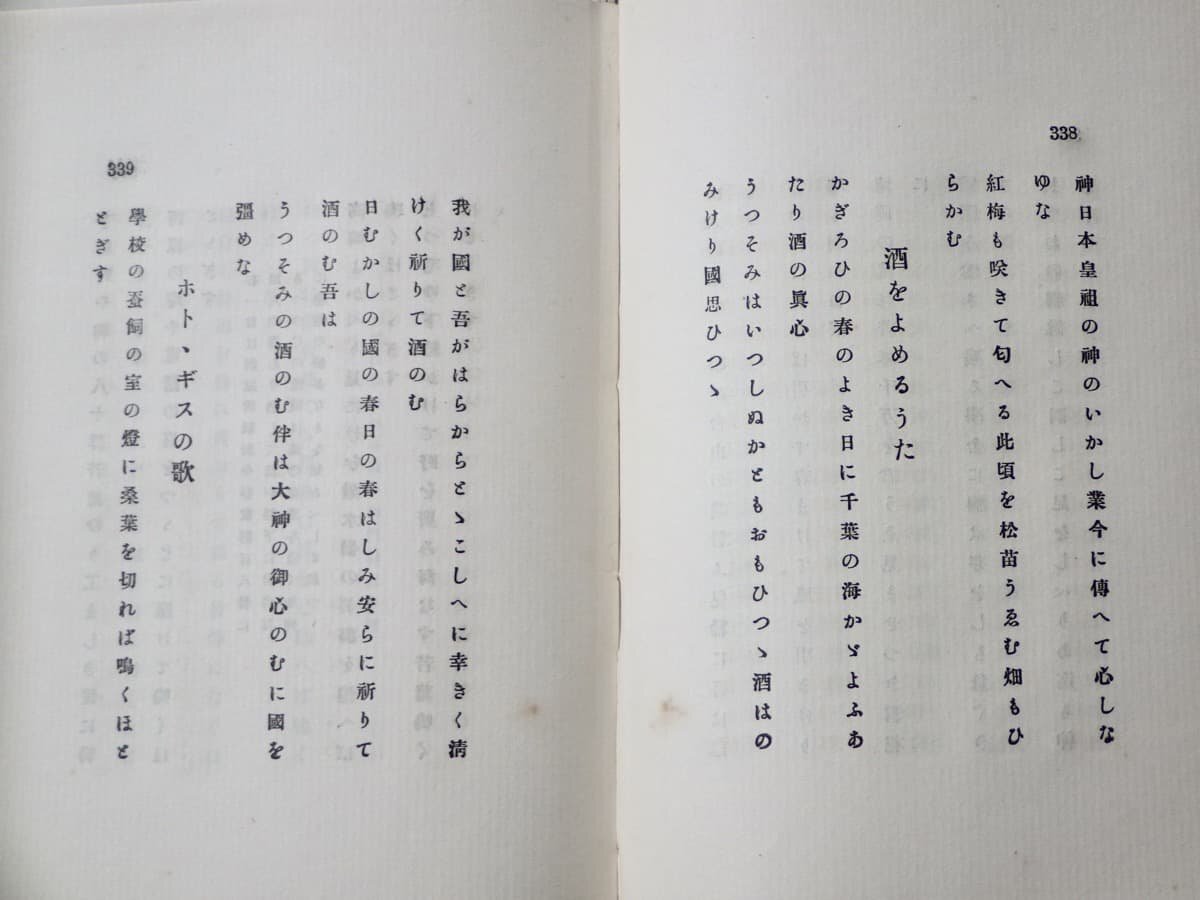 338
神日本皇祖の神のいかし業今に傳へて心しな
ゆな
紅梅も咲きて匂へる此頃を松苗うゑむ畑もひ
らかむ
酒をよめるうた
かぎろひの春のよき日に千葉の海かゞよふあ
たり酒の眞心
うつそみはいつしぬかともおもひつゝ酒はの
みけり國思ひつゝ
339
我が國と吾がはらからとゝこしへに幸きく淸
けく祈りて酒のむ
日むかしの國の春日の春はしみ安らに祈りて
酒のむ吾は
うつそみの酒のむ伴は大神の御心のむに國を
彊めな
ホトヽギスの歌
學校の蚕飼の室の燈に桑葉を切れば鳴くほと
とぎす